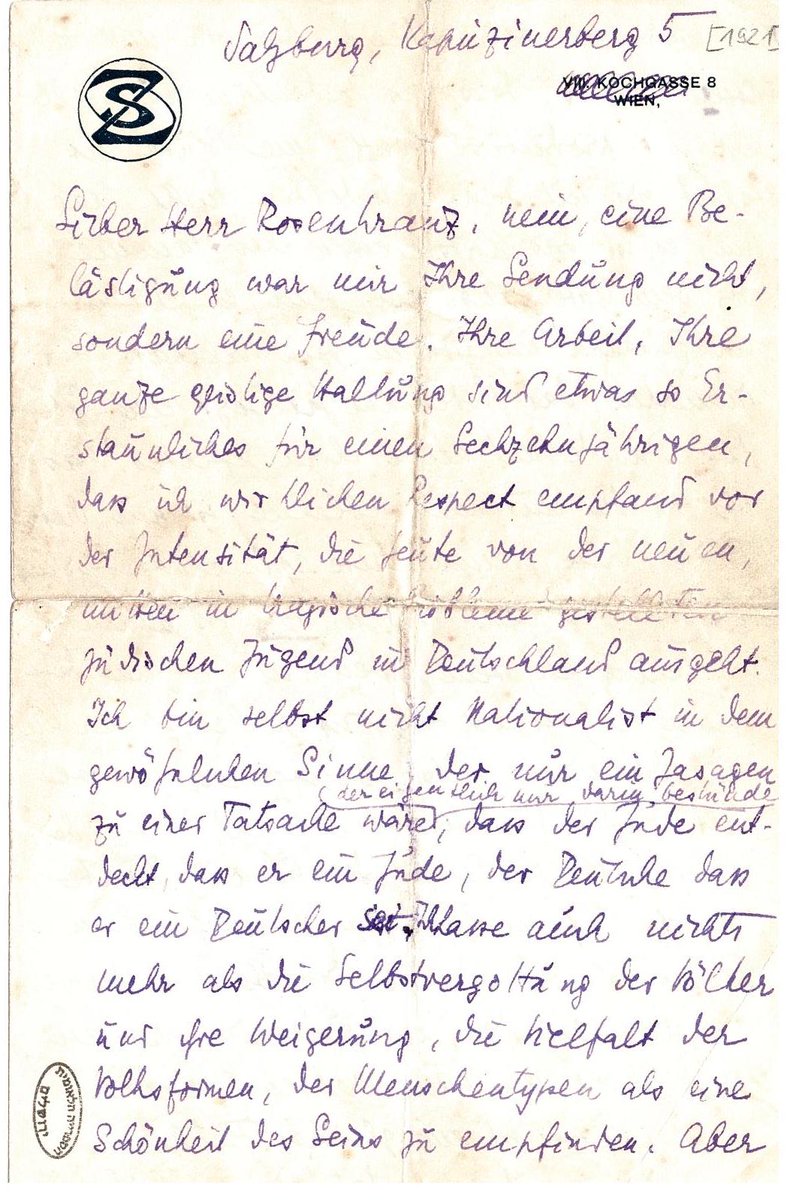 Salzburg, Kapuzinerberg 5 [1921]
VIII. KOCHGASSE 8
WIEN,
SZ
Lieber Herr Rosenkranz, nein, eine Be-
lästigung war mir Ihre Sendung nicht,
sondern eine Freude. Ihre Arbeit, Ihre
ganze geistige Haltung sind etwas so Er-
staunliches für einen Sechzehnjährigen,
dass ich wirklichen Respect empfand vor
der Intensität, die heute von der neuen,
mitten in tragische Probleme gestellten
jüdischen Jugend in Deutschland ausgeht.
Ich bin selbst nicht Nationalist in dem
gewöhnlichen Sinne, der nur ein Jasagen
(der eigentlich nur darin bestünde
zu einer Tatsache wäre, dass der Jude ent-
deckt, dass er ein Jude, der Deutsche dass
er ein Deutscher sei. Ich hasse auch nichts
mehr als die Selbstvergottung der Völker
und ihre Weigerung, die Vielfalt der
Volksformen, der Menschentypen als eine
Schönheit des Seins zu empfinden. Aber